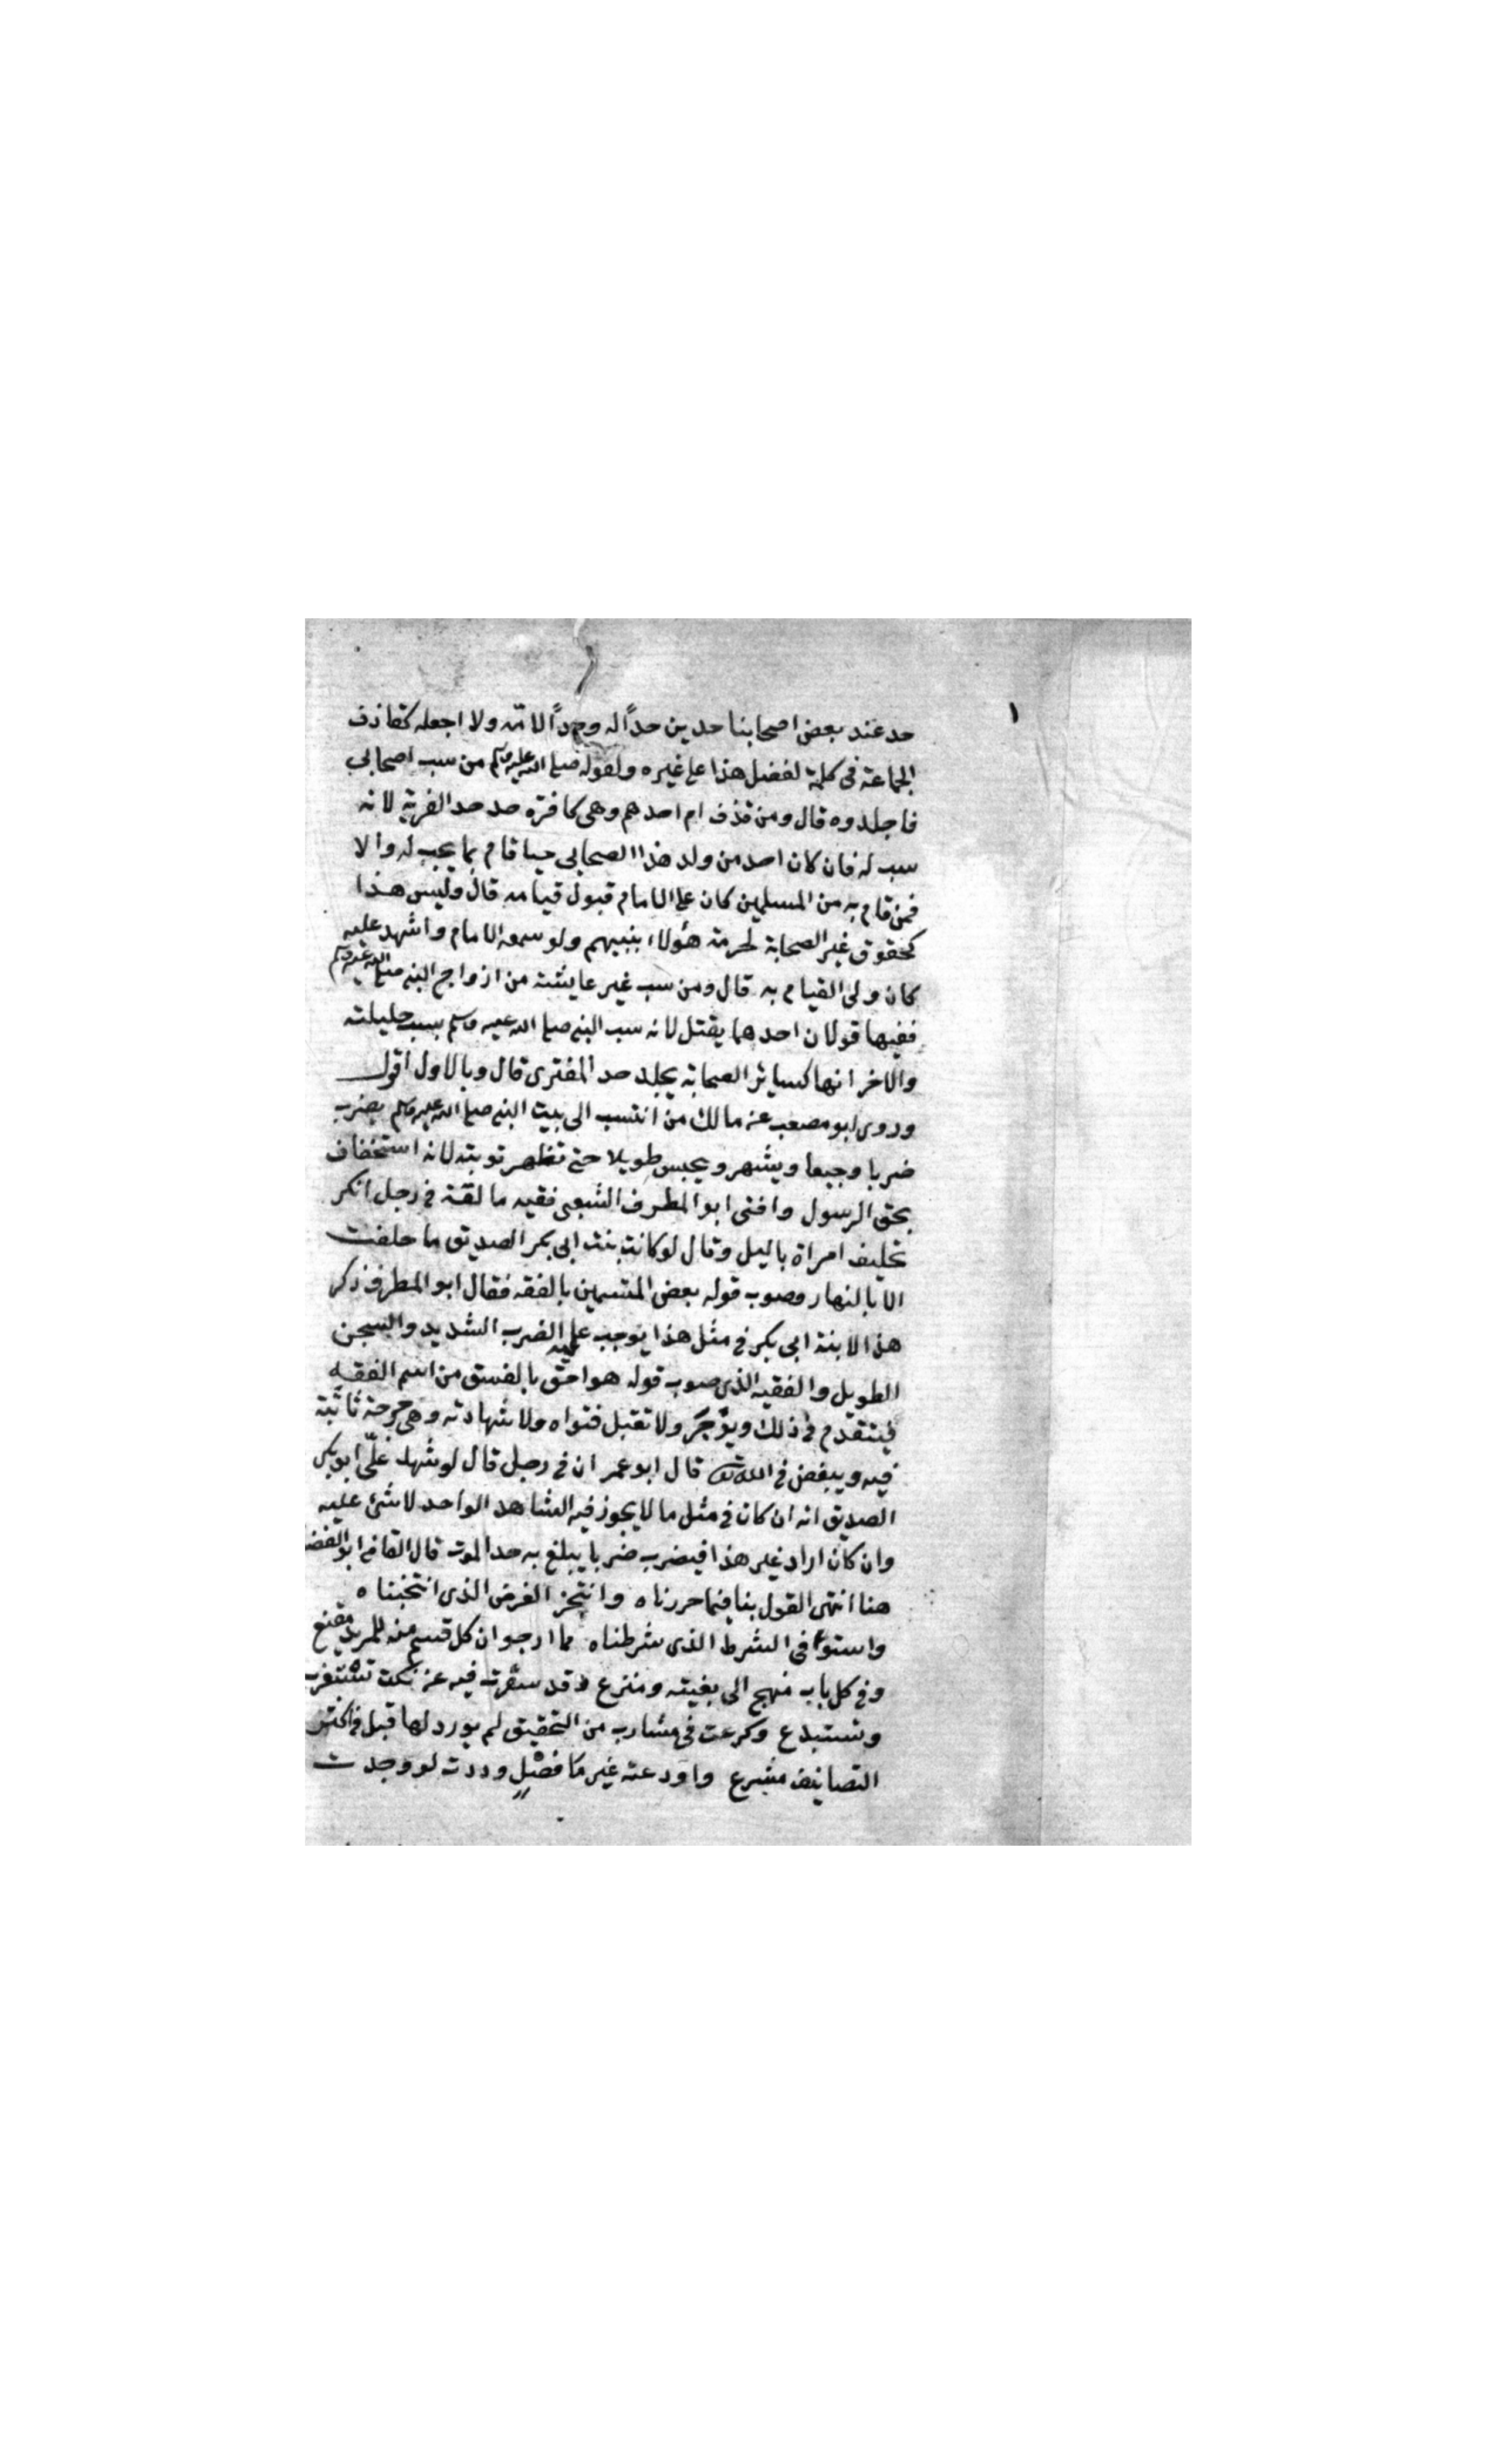 ١
حد عند بعض اصحابنا حدين حداً له وحداً لامّه ولا اجعله كقاذف
الجماعة فى كلمة لفضل هذا على غيره ولقوله صلى الله عليه وسلم من سب اصحابى
فاجلدوه قال ومن قذف ام احدهم وهى كافرة حد حد الفرية لانه
سب له فان كان احد من ولد هذا الصحابى حيا قام بما يجب له والا
فمن قام به من المسلمين كان على الامام قبول قيامه قال وليس هذا
كحقوق غير الصحابة لحرمة هؤلاء بنبيهم ولو سمعه الامام واشهد عليه
كان ولى القيام به قال ومن سب غير عايشة من ازواج النبى صلى الله عليه وسلم
ففيها قولان احدهما يقتل لانه سب النبى صلى الله عليه وسلم بسب حليلته
والاخر انها كسائر الصحابة يجلد حد المفترى قال وبالاول اقول
وروى ابو مصعب عن مالك من انتسب الى بيت النبى صلى الله عليه وسلم يضرب
ضربا وجيعا ويشهر ويحبس طويلا حتى تظهر توبته لانه استخفاف
بحق الرسول وافتى ابو المطرف الشعبى فقيه مالقة فى رجل انكر
تحليف امراة باليل وقال لو كانت بنت ابى بكر الصديق ما حلفت
الا بالنهار وصوب قوله بعض المتسمين بالفقه فقال ابو المطرف ذكر
هذا لابنة ابى بكر فى مثل هذا يوجب عليه الضرب الشديد والسجن
الطويل والفقيه الذى صوب قوله هو احق بالفسق من اسم الفقه
فيتقدم فى ذلك ويؤجر ولا تقبل فتواه ولا شهادته وهى جرحة ثابتة
فيه ويبغض فى الله قال ابو عمران فى رجل قال لو شهد علّى ابو بكر
الصديق انه ان كان فى مثل ما لا يجوز فيه الشاهد الواحد لا شئ عليه
وان كان اراد غير هذا فيضرب ضربا يبلغ به حد الموت قال القاضى ابو الفضل
هنا انتهى القول بنا فيما حررناه وانتجز الغرض الذى انتخبناه
واستوفى الشرط الذى شرطناه مما ارجو ان كل قسم منه للمريد مقنع
وفى كل باب منهج الى بغيته ومنزع وقد سفرت فيه عن نكت تستغرب
وتستبدع وكرعت فى مشارب من التحقيق لم يورد لها قبل فى اكثر
التصانيف مشرع واودعته غير ما فصل وددت لو وجدت